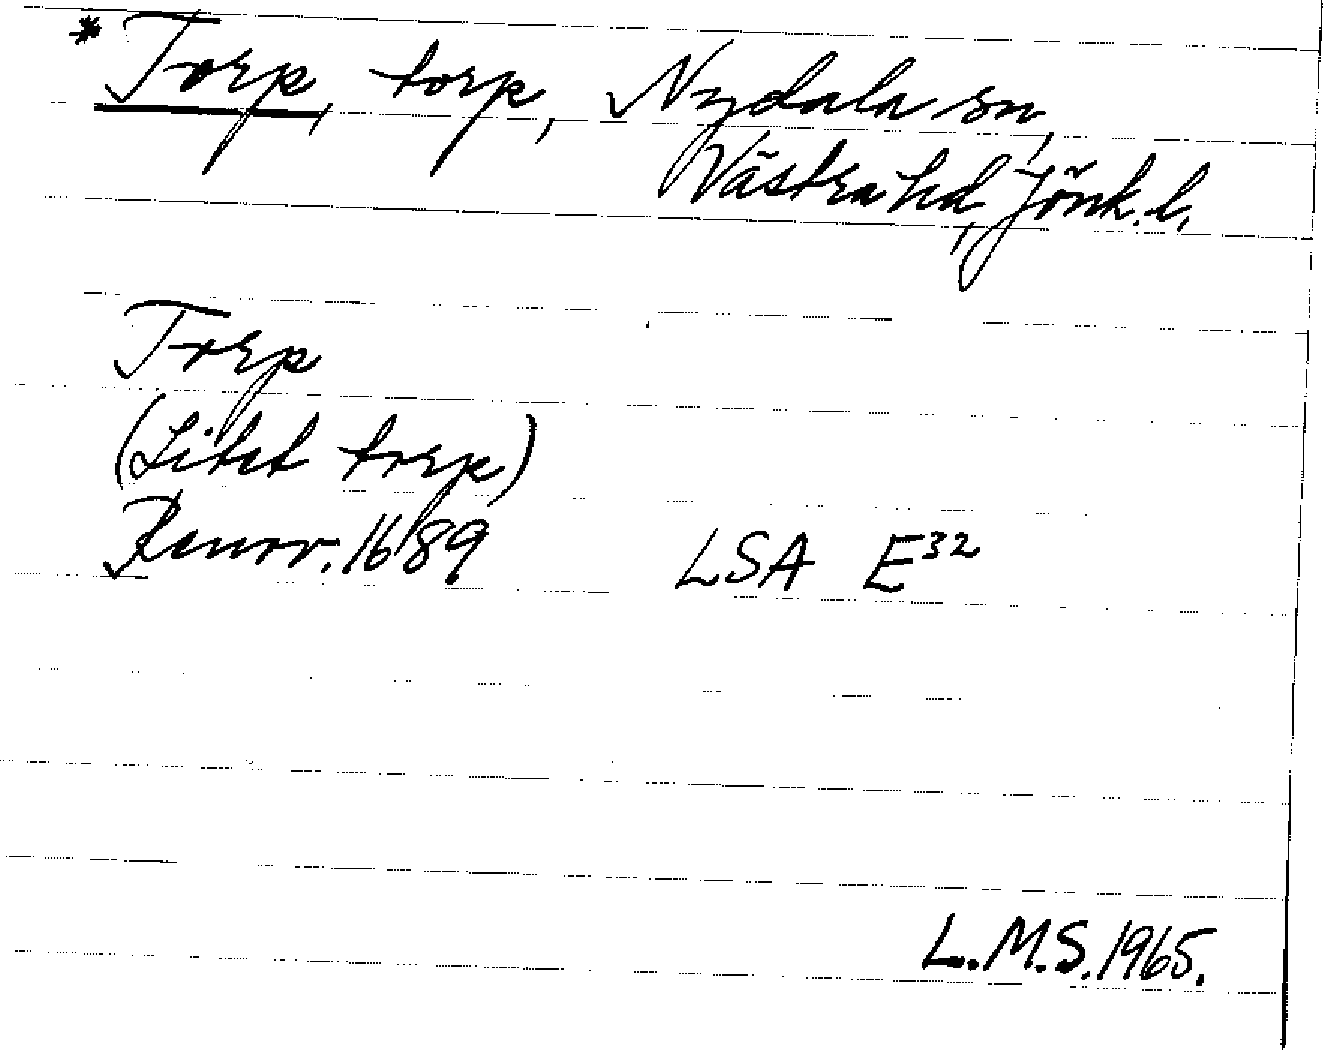 * Torp, torp, Nydala sn,
Västra hd, Jönk. l.
Torp
(Litet torp)
Renov. 1689 LSA E32
L.M.S. 1965.